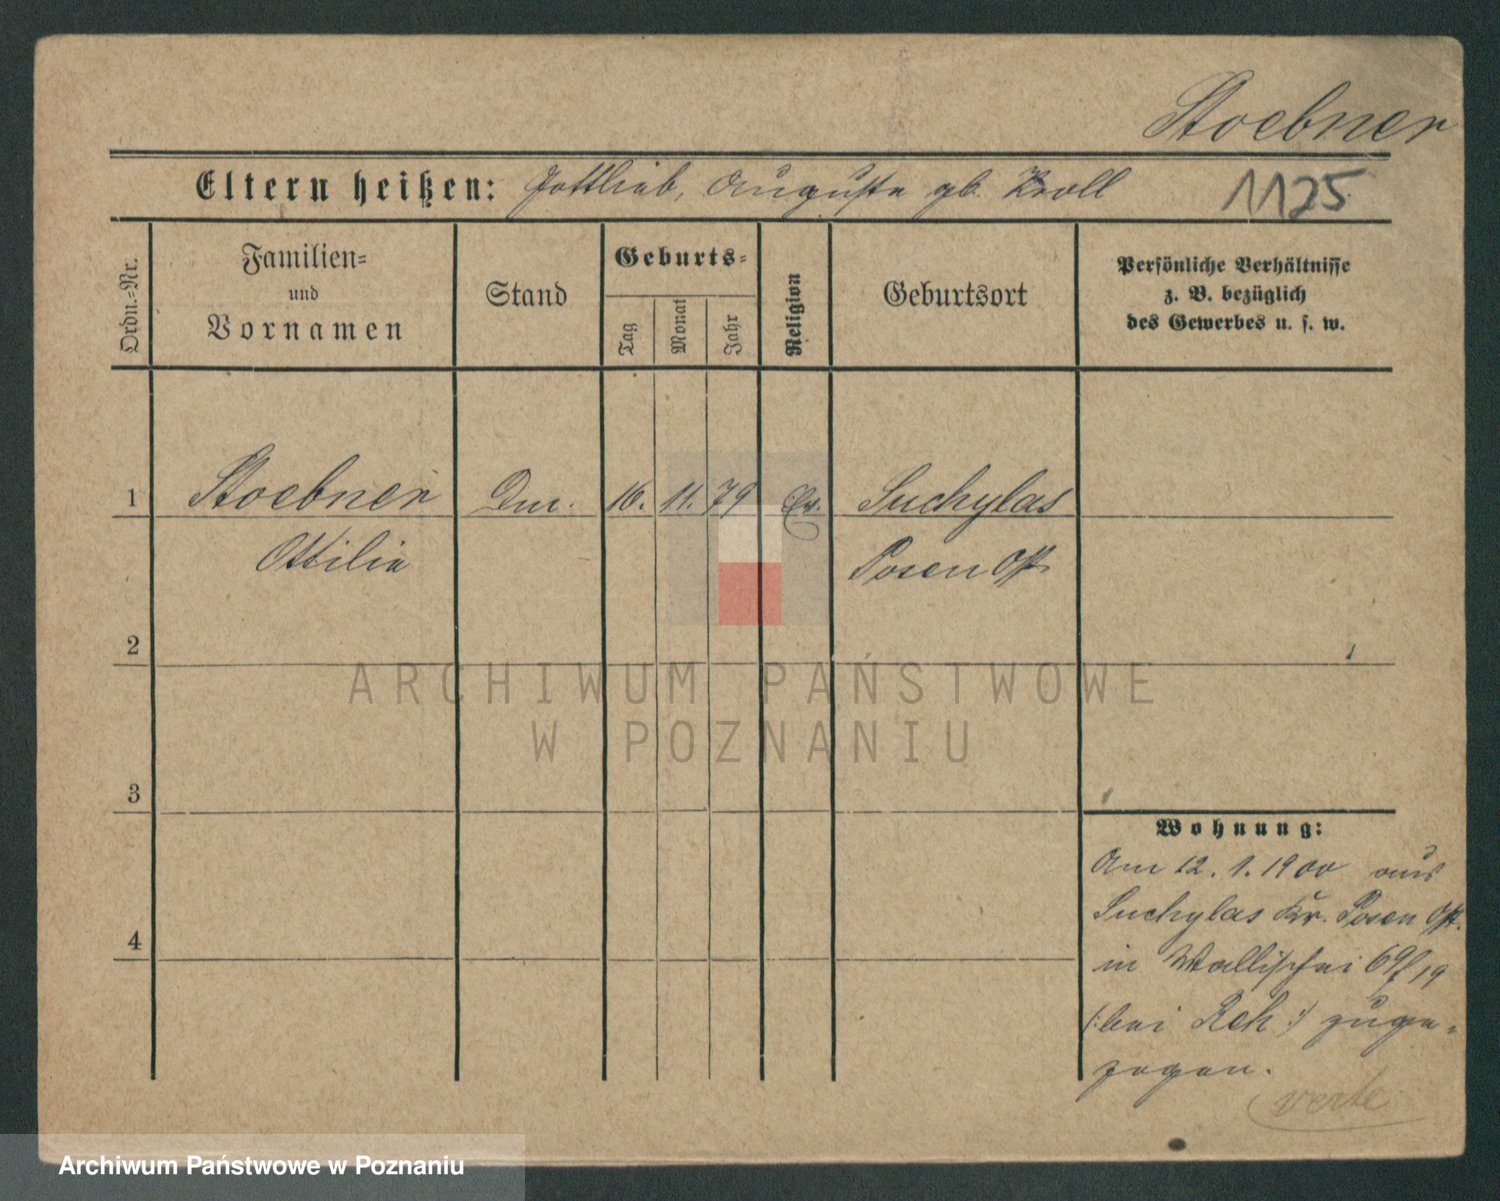 Stoebner
Eltern heißen: Gottlieb, Auguste gb. Kroll
1125
Ordn.=Nr.
Familien=
und
Vornamen
Stand
Geburts=
Tag
Monat
Jahr
Religion
Geburtsort
Persönliche Verhältnisse
z. B. bezüglich
des Gewerbes u. s. w.
1 Stoebner 16. 11. 79 Ev. Suchylas
Ottilie Posen Ost
2
ARCHIWUM PAŃSTWOWE
W POZNANIU
3
Wohnung:
Am 12. 1. 1900 aus
Suchylas Kr. Posen Ost.
4
in Wallischei 69/19
(: bei Reh :) zuge=
zogen.
verte
Archiwum Państwowe w Poznaniu